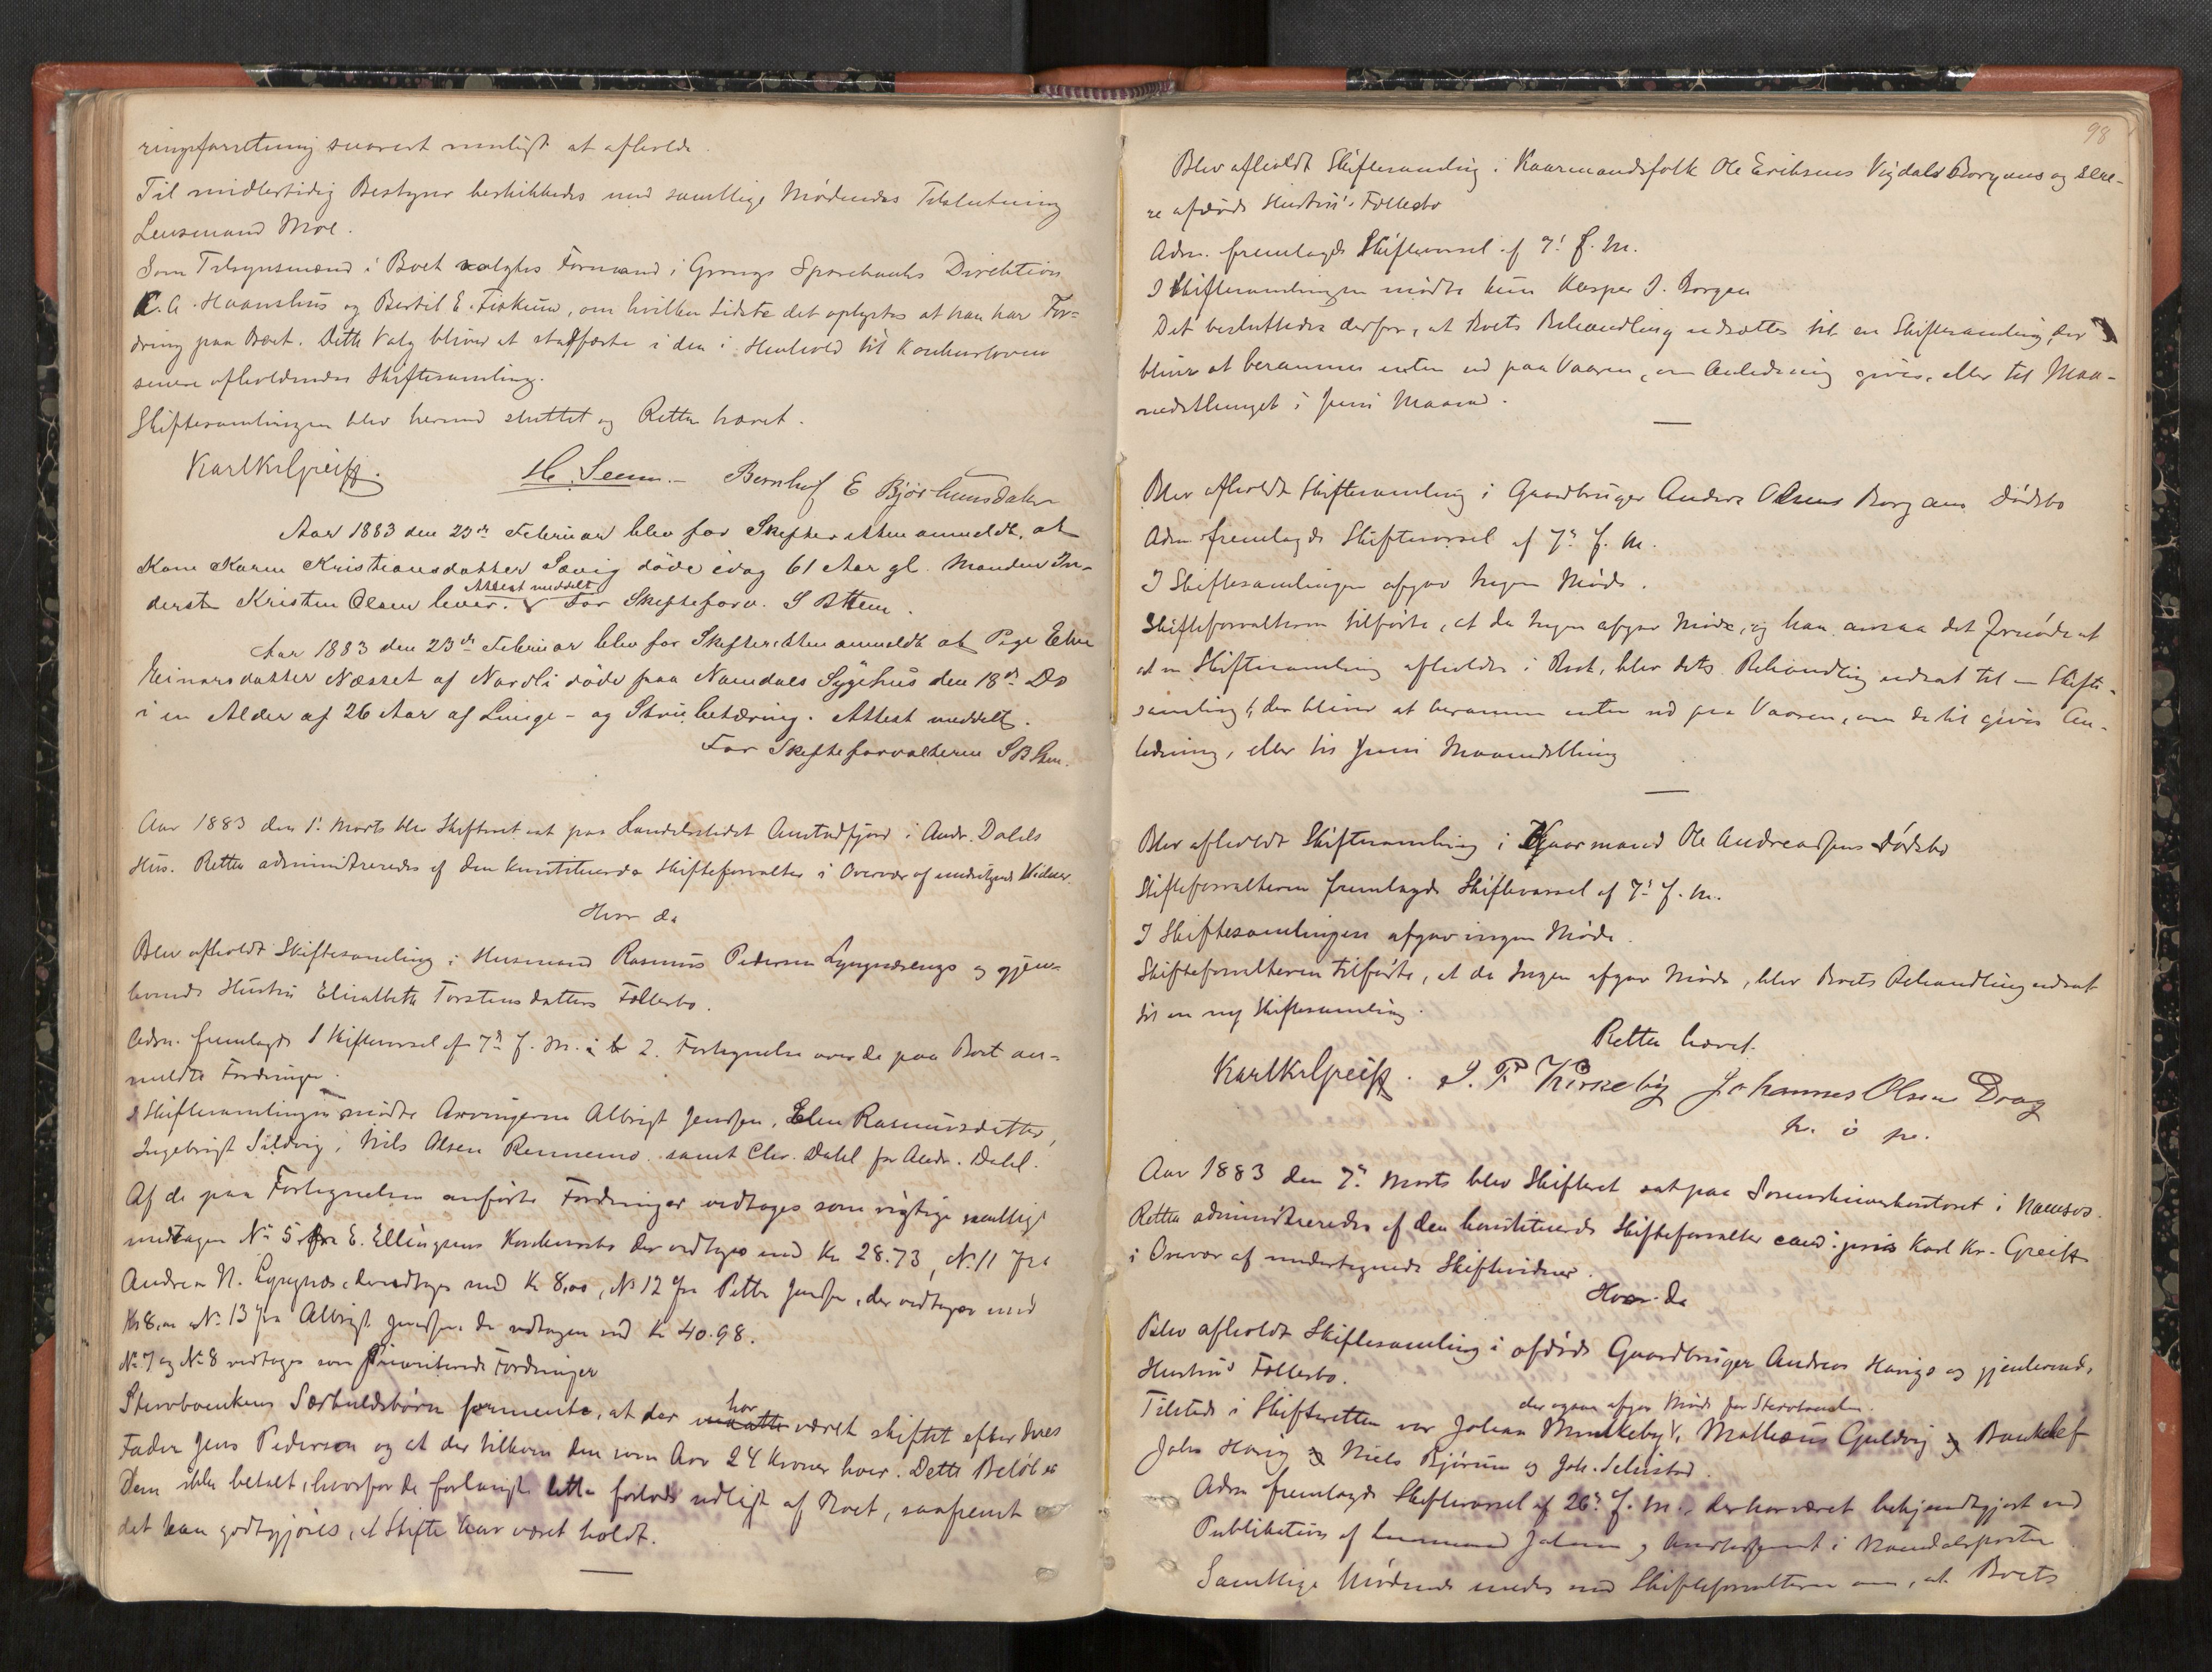 ringsforretning snarest muligst at afholde.
Til midlertidig Bestyrer beskikkedes med samtlige Mødendes Tilslutning
Lensmand Moe.
Som Tilsynsmænd i Boet valgtes Formand i Grongs Sparebanks Direktion
C. A. Haanshus og Bertil E. Fiskum, om hvilken Sidste det oplystes at han har For-
dring paa Boet. Dette Valg bliver at stadfæste i den i Henhold til Konkursloven
senere afholdendes Skiftesamling.
Skiftesamlingen blev hermed sluttet og Retten hævet.
Karl Kr Greiff. H. Seem.- Bernhof E Bjørhusdalen
Aar 1883 den 23de Februar blev for Skifteretten anmeldt, at
Kone Karen Kristiansdatter Sævig døde idag 61 Aar gl. Manden In-
derste Kristen Olsen lever. Attest meddelt For Skifteforv. S Bthen.
Aar 1883 den 23de Februar blev for Skifteretten anmeldt at Pige Elen
Einarsdatter Næsset af Nordli døde paa Namdals Sygehus den 18de Ds
i en Alder af 26 Aar af Lunge- og Strubetæring. Attest meddelt.
For Skifteforvalteren
Aar 1883 den 1ste Marts blev Skifteret sat paa Handelsstedet i Andr. Dahls
Hus. Retten administreredes af den konstituerede Skifteforvalter i Overvær af undertegnede Vidner.
Hvor da
Blev afholdt Skiftesamling i Husmand Rasmus Pedersen Lyngsnesengs og gjen-
levende Hustru Elisabeth Torstensdatters Fællesbo.
Adm. fremlagde 1 Skiftevarsel af 7de f. M. 2. Fortegnelse over de paa Boet an-
meldte Fordringer.
I Skiftesamlingen mødte Arvingerne Albrigt Jenssen, Elen Rasmusdatter,
Ingebrigt Sildvig, Nils Olsen Rennemo samt Chr. Dahl for Andr. Dahl.
Af de paa Fortegnelsen anførte Fordringer vedtoges som rigtige samtlige
undtagen No 5 fra E. Ellingsens Konkursbo der vedtoges med Kr. 28.73, No 11 fra
Andreas N. Lyngsnes, der vedtoges med Kr 8,00, No 12 fra Petter Jenssen, der vedtoges med
Kr 8,00 No 13 fra Albrigt Jenssen, der vedtoges med Kr 40.98.
No 7 og No 8 vedtoges som Prioriterede Fordringer
Stervboenkens Særkuldsbørn formente, at der har været skiftet efter deres
Fader Jens Pedersen og at der tilkom dem som Arv 24 Kroner hver. Dette Beløb er
Dem ikke betalt, hvorfor de forlangte dette forlods udlagt af Boet, saafremt
det kan godtgjøres, at Skifte har været holdt.
98
Blev afholdt Skiftesamling i Kaarmandsfolk Ole Eriksens Vigdals Borgans og sene-
re afdøde Hustrus Fællesbo
Adm. fremlagde Skiftevarsel af 7de f. M.
I Skiftesamlingen mødte kun Kasper J. Borgan
Det besluttedes derfor, at Boets Behandling udsættes til en Skiftesamling, der
bliver at beramme enten ud paa Vaaren, om Anledning gives, eller til Maa-
nedsthinget i Juni Maaned.
Blev afholdt Skiftesamling i Gaardbruger Anders Olsens Borgans Dødsbo
Adm fremlagde Skiftevarsel af 7de f. M.
I Skiftesamlingen afgav Ingen Møde.
Skifteforvalteren tilførte, at da Ingen afgav Møde, og han ansaa det fornødent
at en Skiftesamling afholdes i Boet, blev dets Behandling udsat til en Skifte-
samling, der bliver at beramme enten ud paa Vaaren, om dertil gives An-
ledning, eller til Juni Maanedsthing
Blev afholdt Skiftesamling i Kaarmand Ole Andreassens Dødsbo
Skifteforvalteren fremlagde Skiftevarsel af 7de f. M.
I Skiftesamlingen afgav ingen Møde.
Skifteforvalteren tilførte, at da Ingen afgav Møde, blev Boets Behandling udsat
til en ny Skiftesamling.
Retten hævet.
Karl Kr Greiff. J. P Kirkeby Johannes Olsen Drag
m. i p.
Aar 1883 den 7de Marts blev Skifteret sat paa Sorenskriverkontoret i Namsos.
Retten administreredes af den konstituerede Skifteforvalter cand. juris Karl Kr. Greiff
i Overvær af undertegnede Skiftevidner.
Hvor da
Blev afholdt Skiftesamling i afdøde Gaardbruger Andreas Havigs og gjenlevende
Hustrus Fællesbo.
der ogsaa afgav Møde for Stervboenken
Tilstede i Skifteretten var Johan Minkeby, Mathæus Guldvig
Johs Havig Niels Bjørum og Joh. Selnstad.
Adm fremlagde Skiftevarsel af 26de f. M., der har været bekjendtgjort ved
Publikation af Lensmand og i Namdalsposten
Samtlige Mødende enedes med Skifteforvalteren om, at Boets